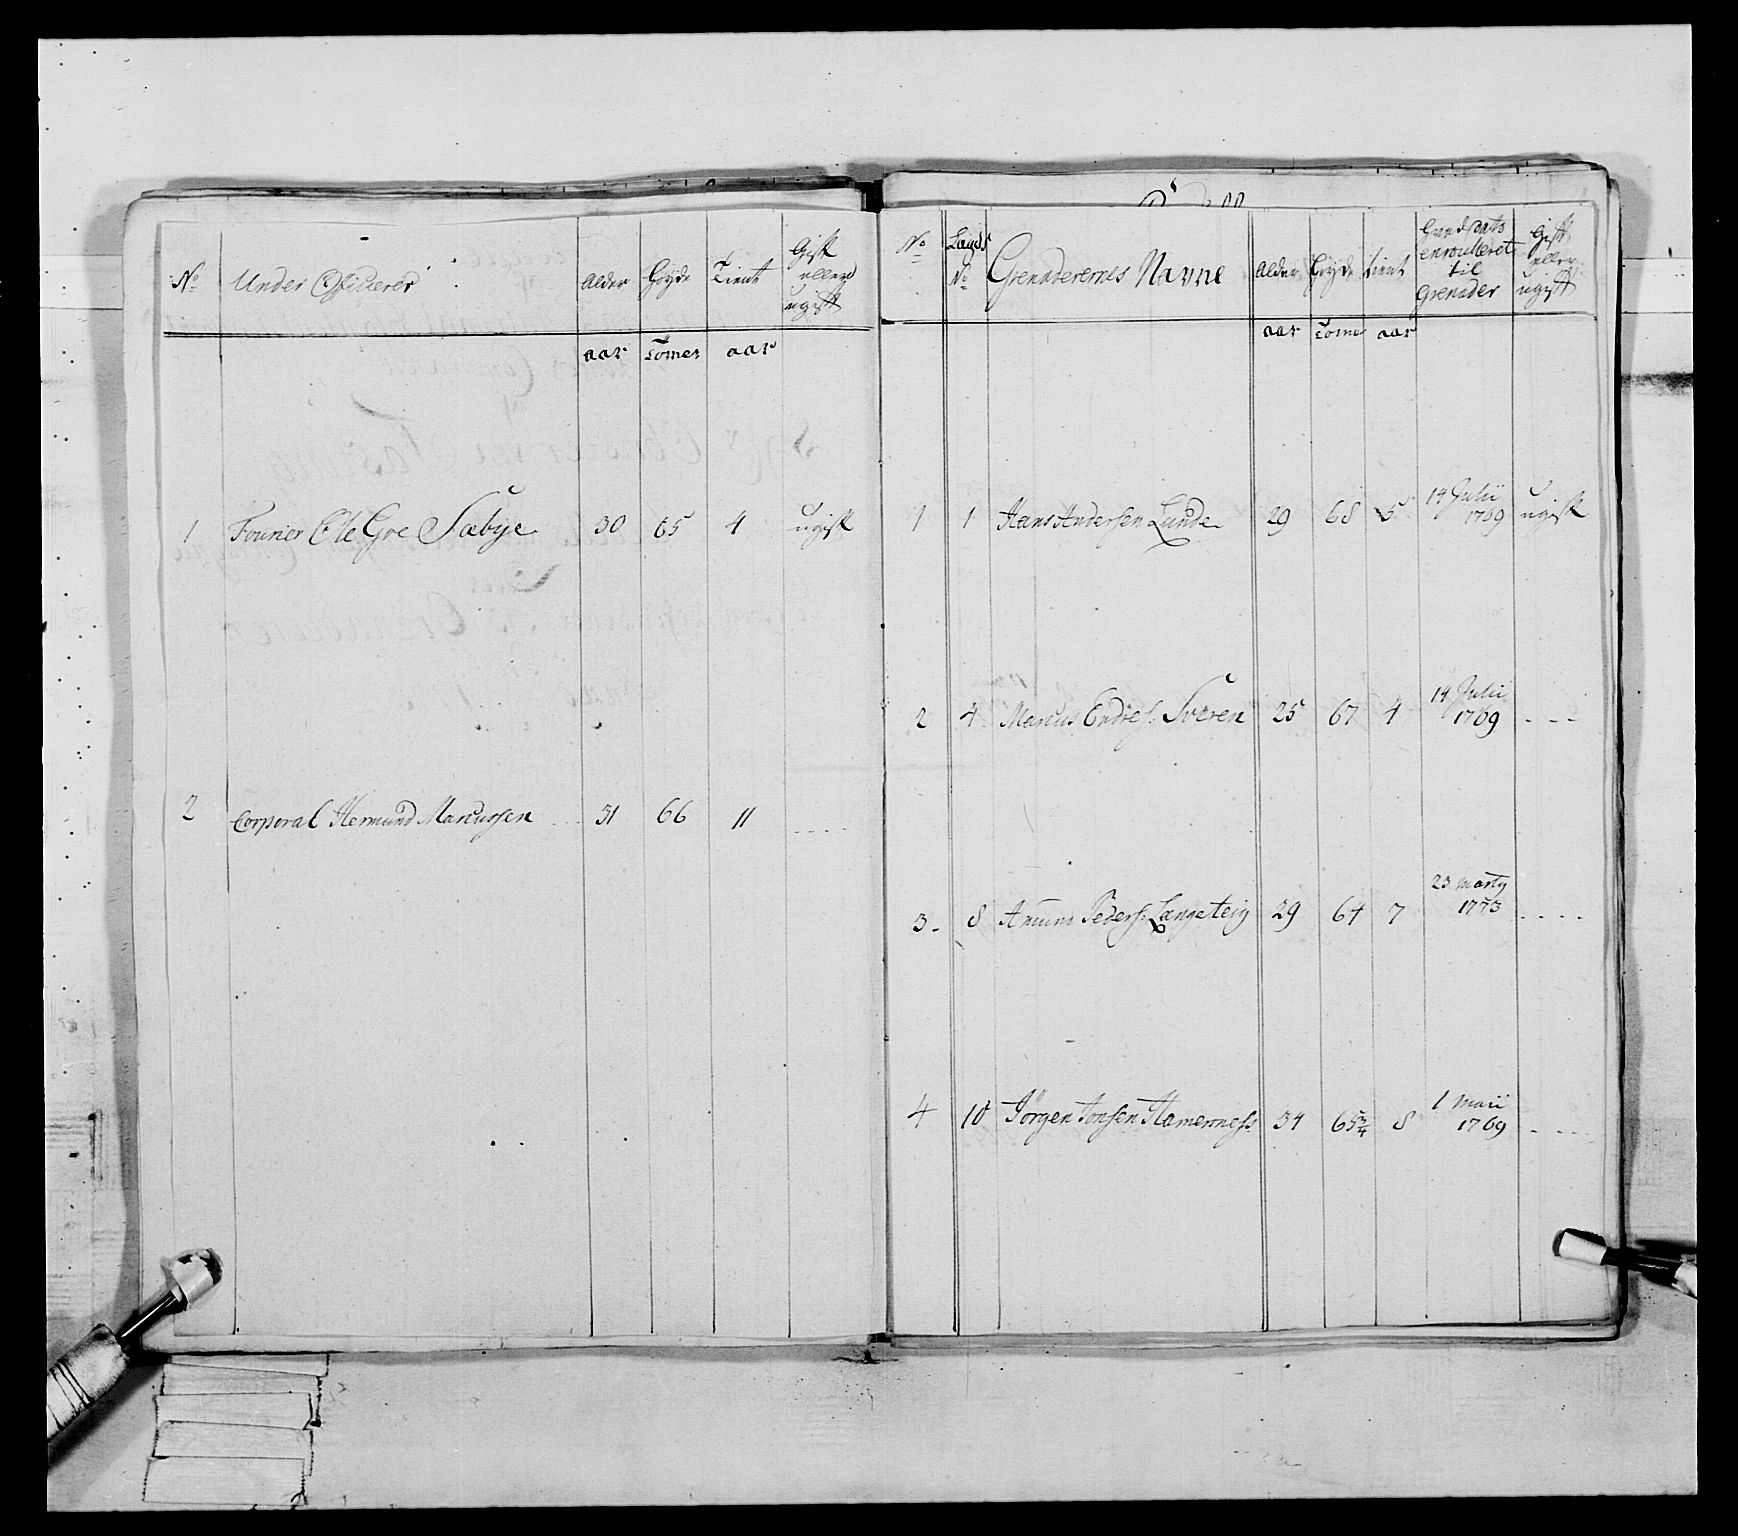 No Under Officierer Alder Høyde Tient Gift eller ugift
aar Tomer aar
1 Fourier Ole Gre Sæbye 30 65 4 ugift
2 Corporal Hermund Marcussen 31 66 11 - - - -
No Lægds No Grenaderernes Navne Alder Høyde tient enroulleret til Grenader Gift eller ugift
aar Tomer aar
1 1 Hans Andersen Lunde 29 68 5 14 Julii 1769 ugift
2 4 Marcus Endres: Sveren 25 67 4 14 Julii 1769 - - -
3 8 Amund Peders: Langeteig 29 64 7 23 Marty 1773 - - - -
4 10 Jørgen Jonsen Hamerness 34 65 3/4 8 1 Maii 1769 - - - -